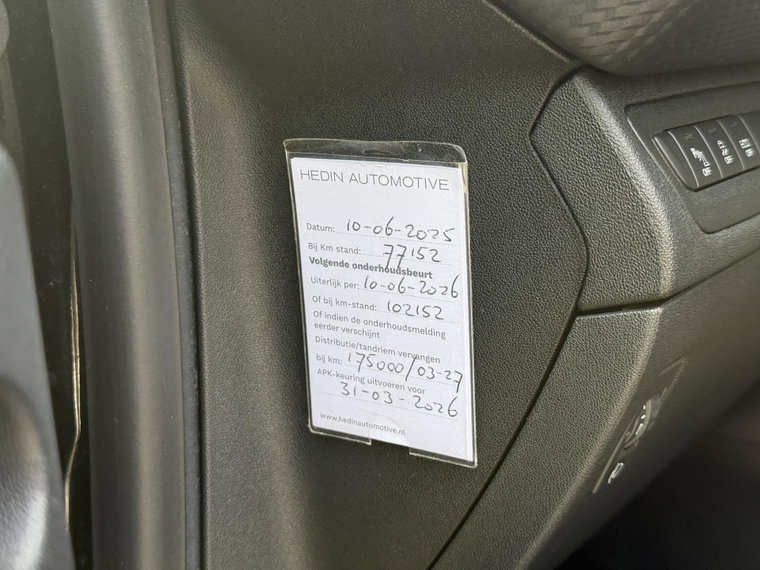 HEDIN AUTOMOTIVE
Datum: 10-06-2025
Bij Km stand: 77152
Volgende onderhoudsbeurt
Uiterlijk per: 10-06-2026
Of bij km-stand: 102152
Of indien de onderhoudsmelding
eerder verschijnt
Distributie/tandriem vervangen
bij km: 175000/03-27
APK-keuring uitvoeren voor
31-03-2026
www.hedinautomotive.nl